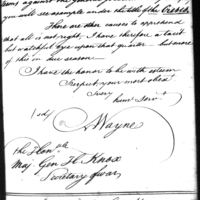 you will see example under the title of the Creek
There are other causes to apprehend
that all is not right, I have therefore a tacit
but watchful eye upon that quarter — but more
of this in due season.
I have the honor to be with esteem
& respect, your most obed.t
huml. Serv.t
Wayne
The Hon.ble
Maj. Gen. H. Knox
Secretary of war